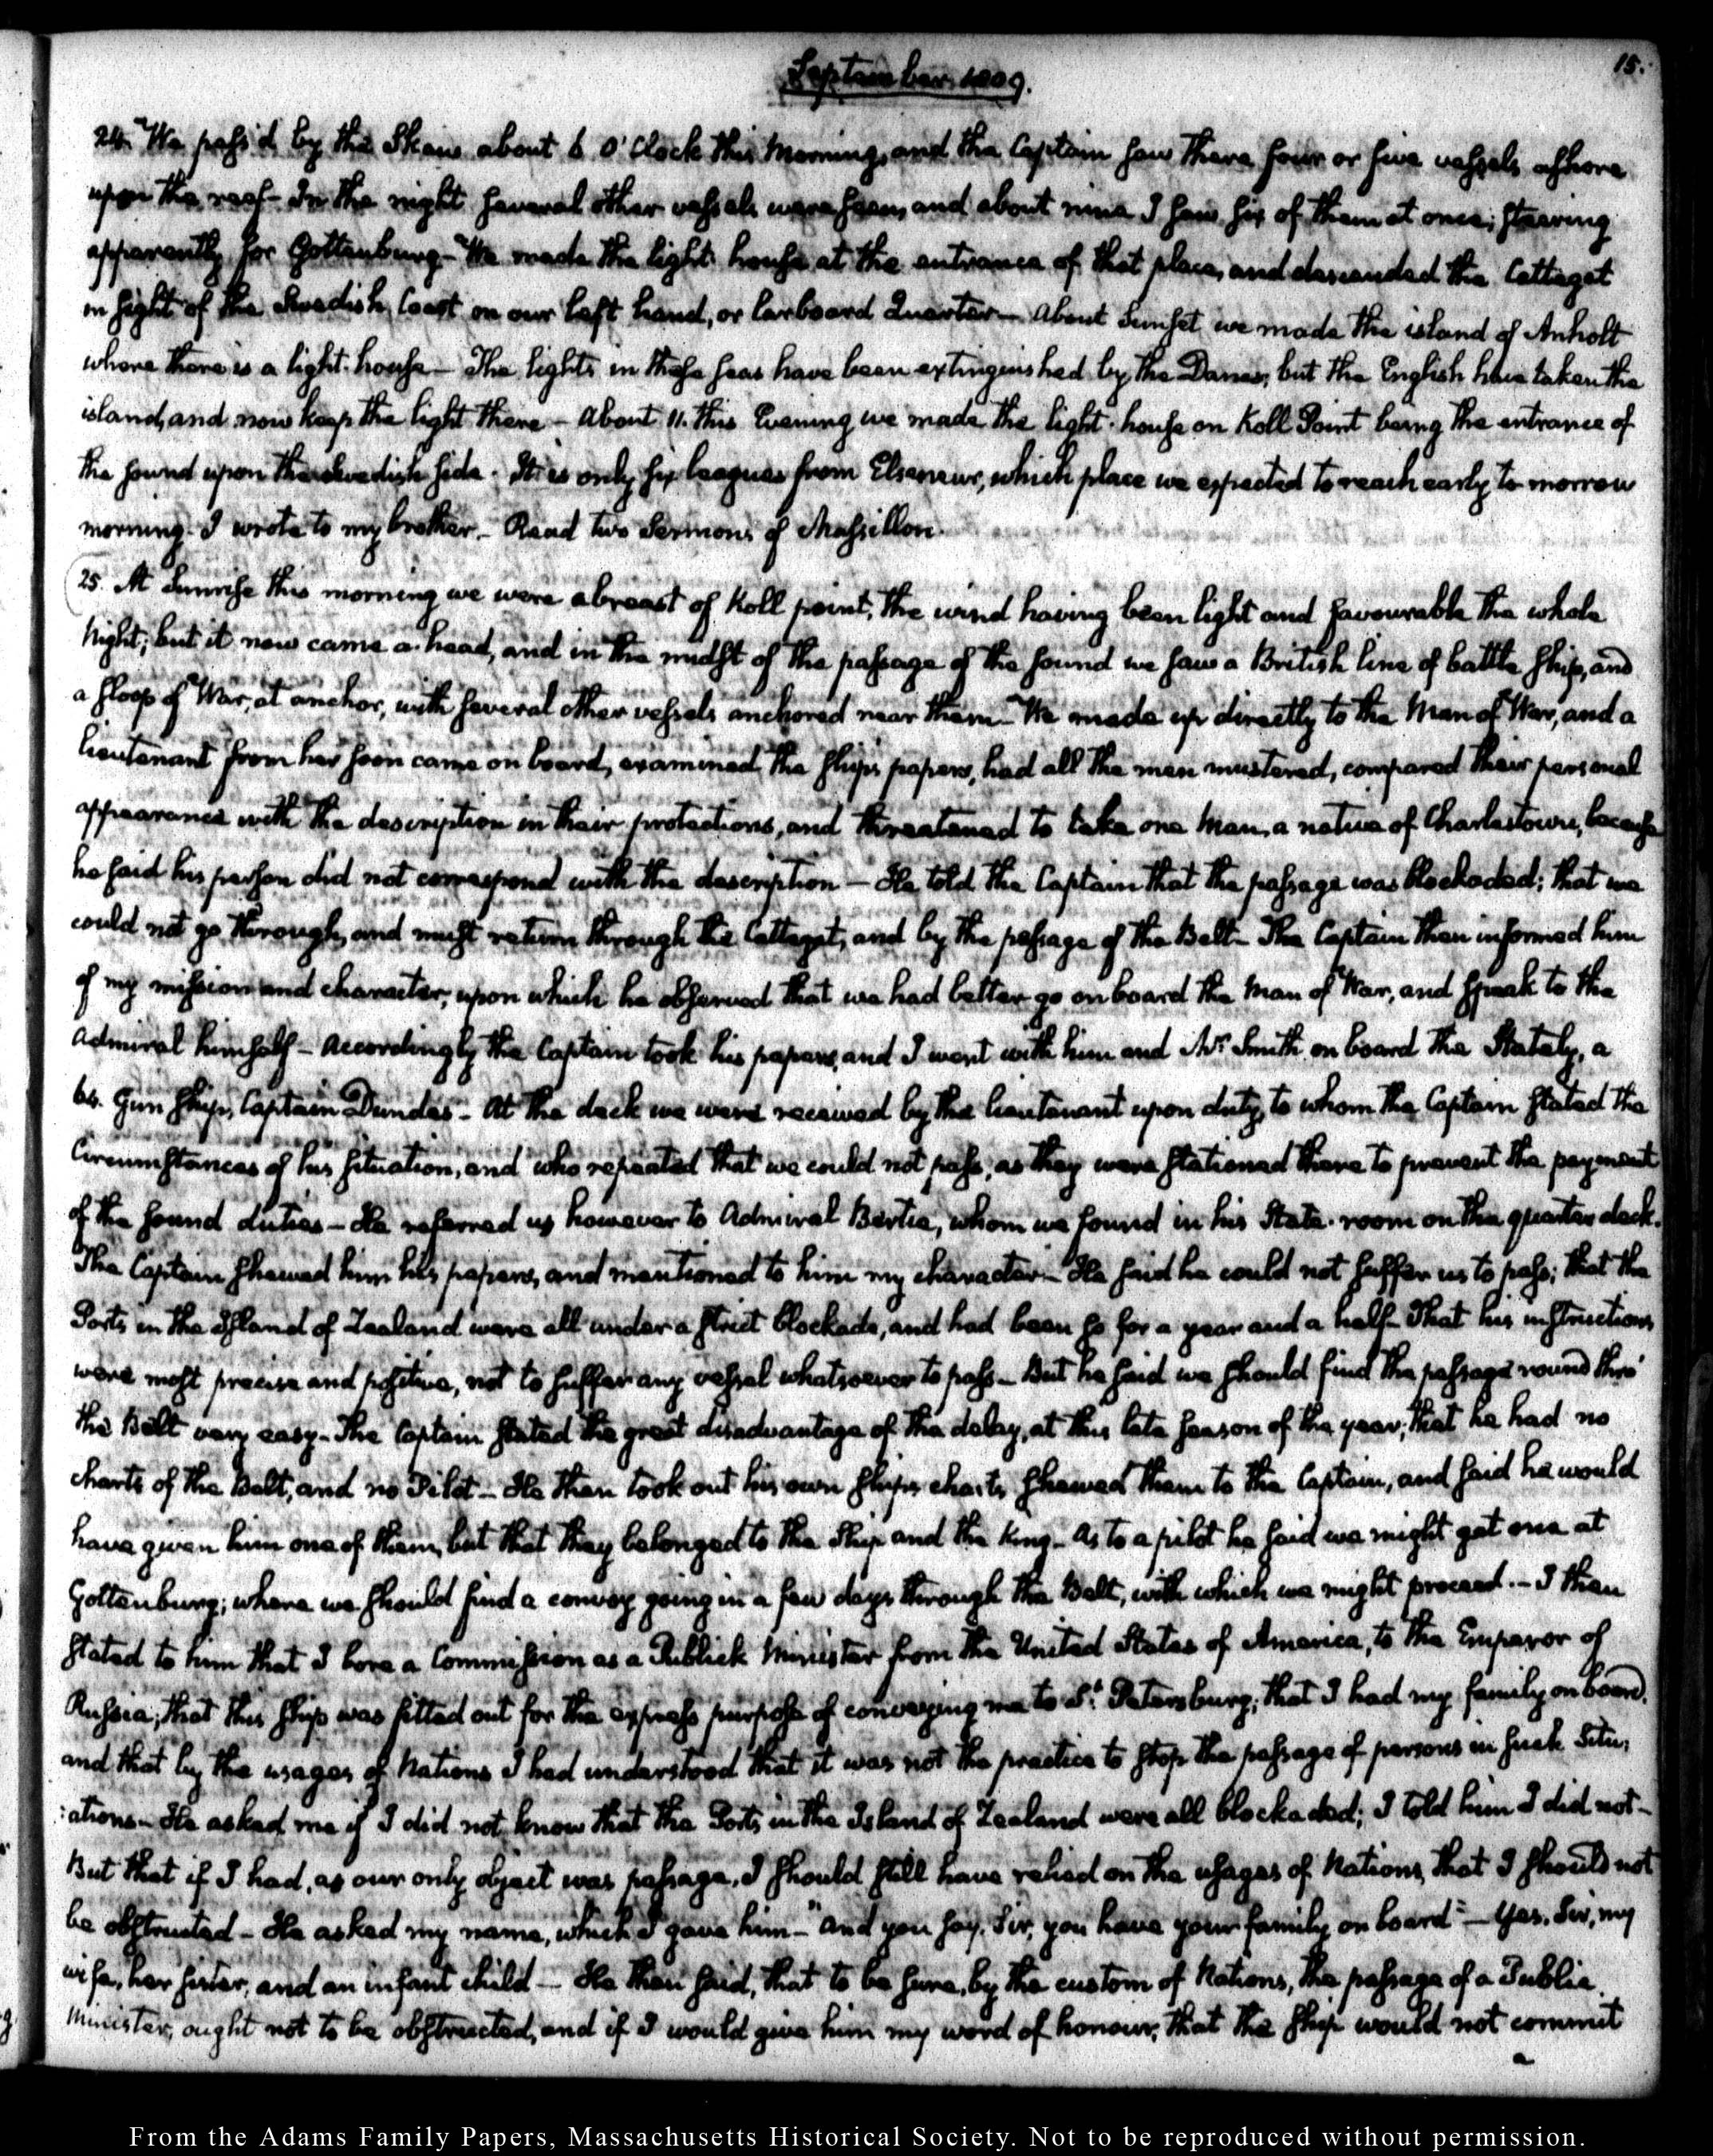 September 1809.
15.
24. We pass'd by the Skaw about 6 O'Clock this Morning, and the Captain saw there four or five vessels ashore
upon the reef - In the night several other vessels were seen, and about nine I saw six of them at once; steering
apparently for Gottenburg - We made the light house at the entrance of that place, and descended the Cattegat
in sight of the Swedish Coast on our left hand, or larboard Quarter - About Sunset we made the island of Anholt
where there is a light-house - The lights in these seas have been extinguished by the Danes, but the English have taken the
island, and now keep the light there - About 11. this Evening we made the light-house on Koll Point being the entrance of
the sound upon the Swedish side. It is only six leagues from Elseneur, which place we expected to reach early to-morrow
morning. I wrote to my brother. - Read two Sermons of Massillon.
25. At Sunrise this morning we were abreast of Koll point, the wind having been light and favourable the whole
Night; but it now came a-head, and in the midst of the passage of the sound we saw a British line of battle ship, and
a sloop of War, at anchor, with several other vessels anchored near them - We made up directly to the Man of War, and a
lieutenant from her soon came on board, examined the ship's papers, had all the men mustered, compared their personal
appearance with the description in their protections, and threatened to take one Man, a native of Charlestown, because
he said his person did not correspond with the description - He told the Captain that the passage was blockaded; that we
could not go through, and must return through the Cattegat, and by the passage of the Belt - The Captain then informed him
of my mission and character, upon which he observed that we had better go on board the Man of War, and speak to the
Admiral himself - Accordingly the Captain took his papers, and I went with him and Mr. Smith on board the Stately, a
64. Gun ship, Captain Dundas - At the deck we were received by the lieutenant upon duty, to whom the Captain stated the
Circumstances of his situation, and who repeated that we could not pass, as they were stationed there to prevent the payment
of the sound duties - He referred us however to Admiral Bertie, whom we found in his State-room on the quarter deck.
The Captain shewed him his papers, and mentioned to him my character - He said he could not suffer us to pass; that the
Ports in the Island of Zealand were all under a strict blockade, and had been so for a year and a half - That his instructions
were most precise and positive, not to suffer any vessel whatsoever to pass - But he said we should find the passage round thro'
the Belt very easy - The Captain stated the great disadvantage of the delay, at this late season of the year; that he had no
charts of the Belt, and no Pilot - He then took out his own ship's charts, shewed them to the Captain, and said he would
have given him one of them, but that they belonged to the Ship and the King - As to a pilot he said we might get one at
Gottenburg; where we should find a convoy going in a few days through the Belt, with which we might proceed. - I then
stated to him that I bore a Commission as a Publick Minister from the United States of America, to the Emperor of
Russia; that this ship was fitted out for the express purpose of conveying me to St. Petersburg; that I had my family on board.
and that by the usages of Nations I had understood that it was not the practice to stop the passage of persons in such Situ:
:ations - He asked me if I did not know that the Ports in the Island of Zealand were all blockaded; I told him I did not -
But that if I had, as our only object was passage, I should still have relied on the usages of Nations, that I should not
be obstructed - He asked my name, which I gave him - "And you say, Sir, you have your family on board" - Yes, Sir, my
wife, her sister, and an infant child - He then said, that to be sure, by the custom of Nations, the passage of a Public
Minister, ought not to be obstructed, and if I would give him my word of honour, that the ship would not commit
a
From the Adams Family Papers, Massachusetts Historical Society. Not to be reproduced without permission.